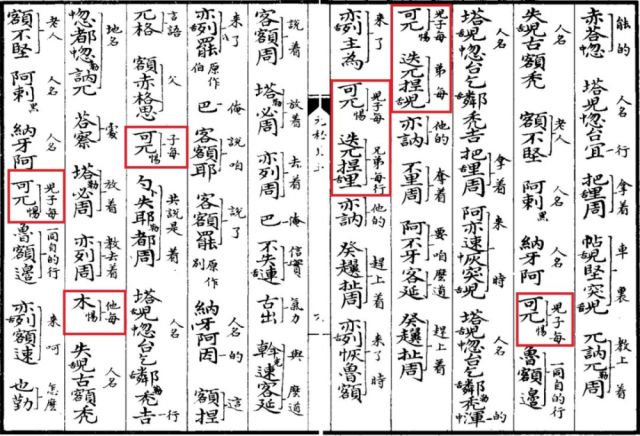 能的 人名 拿着 車裏 教上着
赤荅忽 塔兒忽台宜 把鯉周 帖兒堅突兒 兀訥兀勒周
人名 老人 人名 人名 兒子每 一同自的行
失兒古額禿 額不堅 阿剌黑 納牙阿 可兀惕 魯額邊
人名 拿着 來時 人名的
塔兒忽台乞鄰禿吉 把鯉周 阿亦速恢突兒 塔兒忽台乞鄰禿渾
兒子每 弟每 他的 奪着 要咱麼道 趕上着
可兀惕 迭兀捏兒 亦訥 不里周 阿不牙客延 癸趲扯周
來了 兒子每 兄弟每行 他的 趕上着 來了時
亦列主為 可兀惕 迭兀捏里 亦訥 癸趲扯周 亦列恢魯額
說着 放着 去着 俺 信實 氣力 與麼道
客額周 塔勒必周 亦列周 巴 不失連 古出 斡克速客延
來了 俺 說咱 說了 人名的 這
亦列罷 原作伯 巴 客額耶 客額羆 原作別 納牙阿因 額捏
言語 父 子每 共說是着 人名行
兀格 額赤格思 可兀惕 勺卜失耶都周 塔兒忽台乞鄰禿吉
地名 處 放着 教去着 他每 人名
忽都忽勒訥兀 荅察 塔勒必周 亦列周 木惕 失兒古額禿
老人 人名 人名 兒子每 一同自的行 來呵 怎麼
額不堅 阿剌黑 納牙阿 可兀惕 魯額邊 亦列額速 也勤